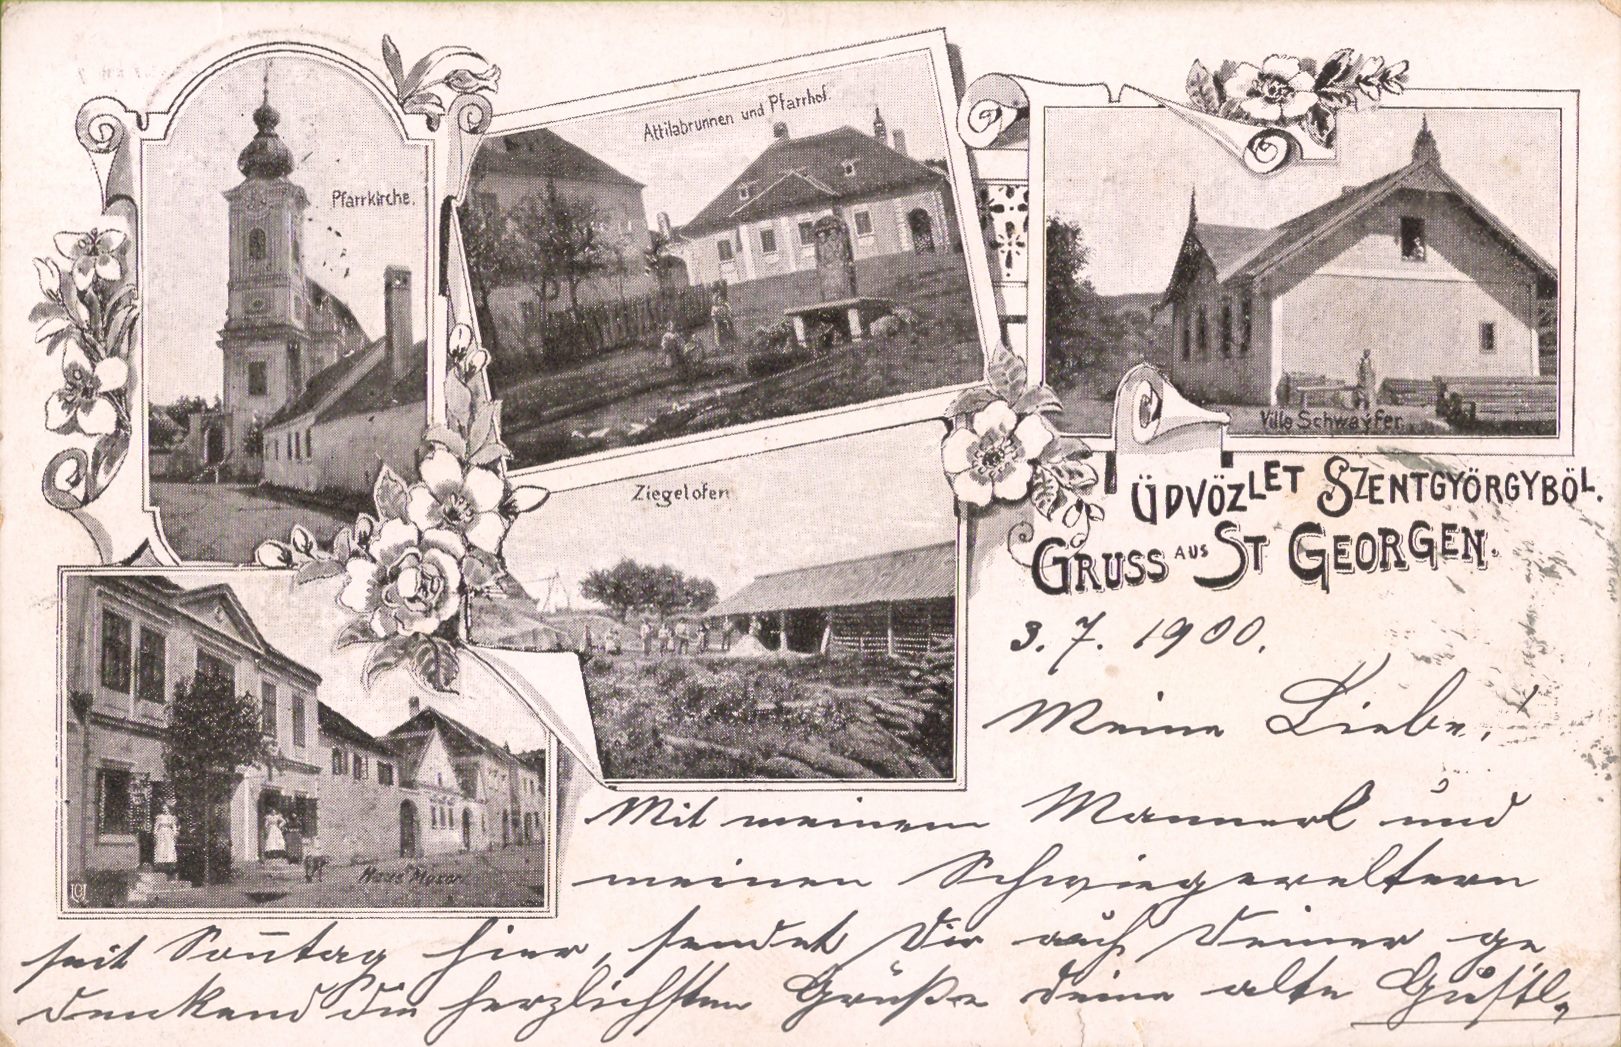 Pfarrkirche.
Attilabrunnen und Pfarrhof.
Villa Schwayfer.
Ziegelofen
ÜDVÖZLET SZENTGYÖRGYBÖL.
GRUSS AUS ST GEORGEN.
Haus Moser
3. 7. 1900.
Meine Liebe,
Mit meinem Mannerl und
meinen Schwiegereltern
seit Sonntag hier, sendet Dir auch Deiner ge
denkend die herzlichsten Grüße deine alte Gustl.